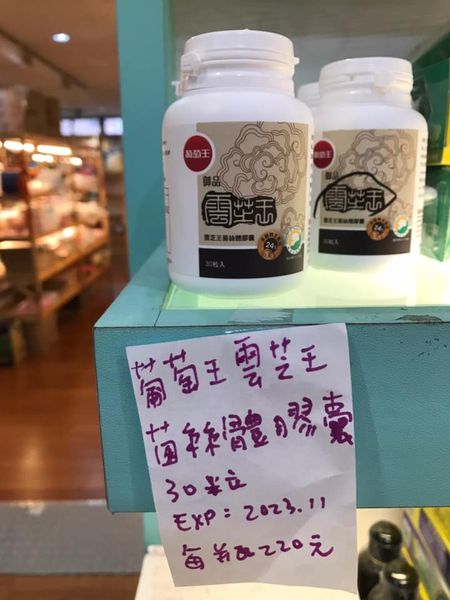 葡萄王
御品
雲芝王
雲芝王菌絲體膠囊
24
30粒入
葡萄王
御品
雲芝王
24
30粒入
葡萄王雲芝王
菌絲體膠囊
30粒
EXP：2023.11
每瓶220元